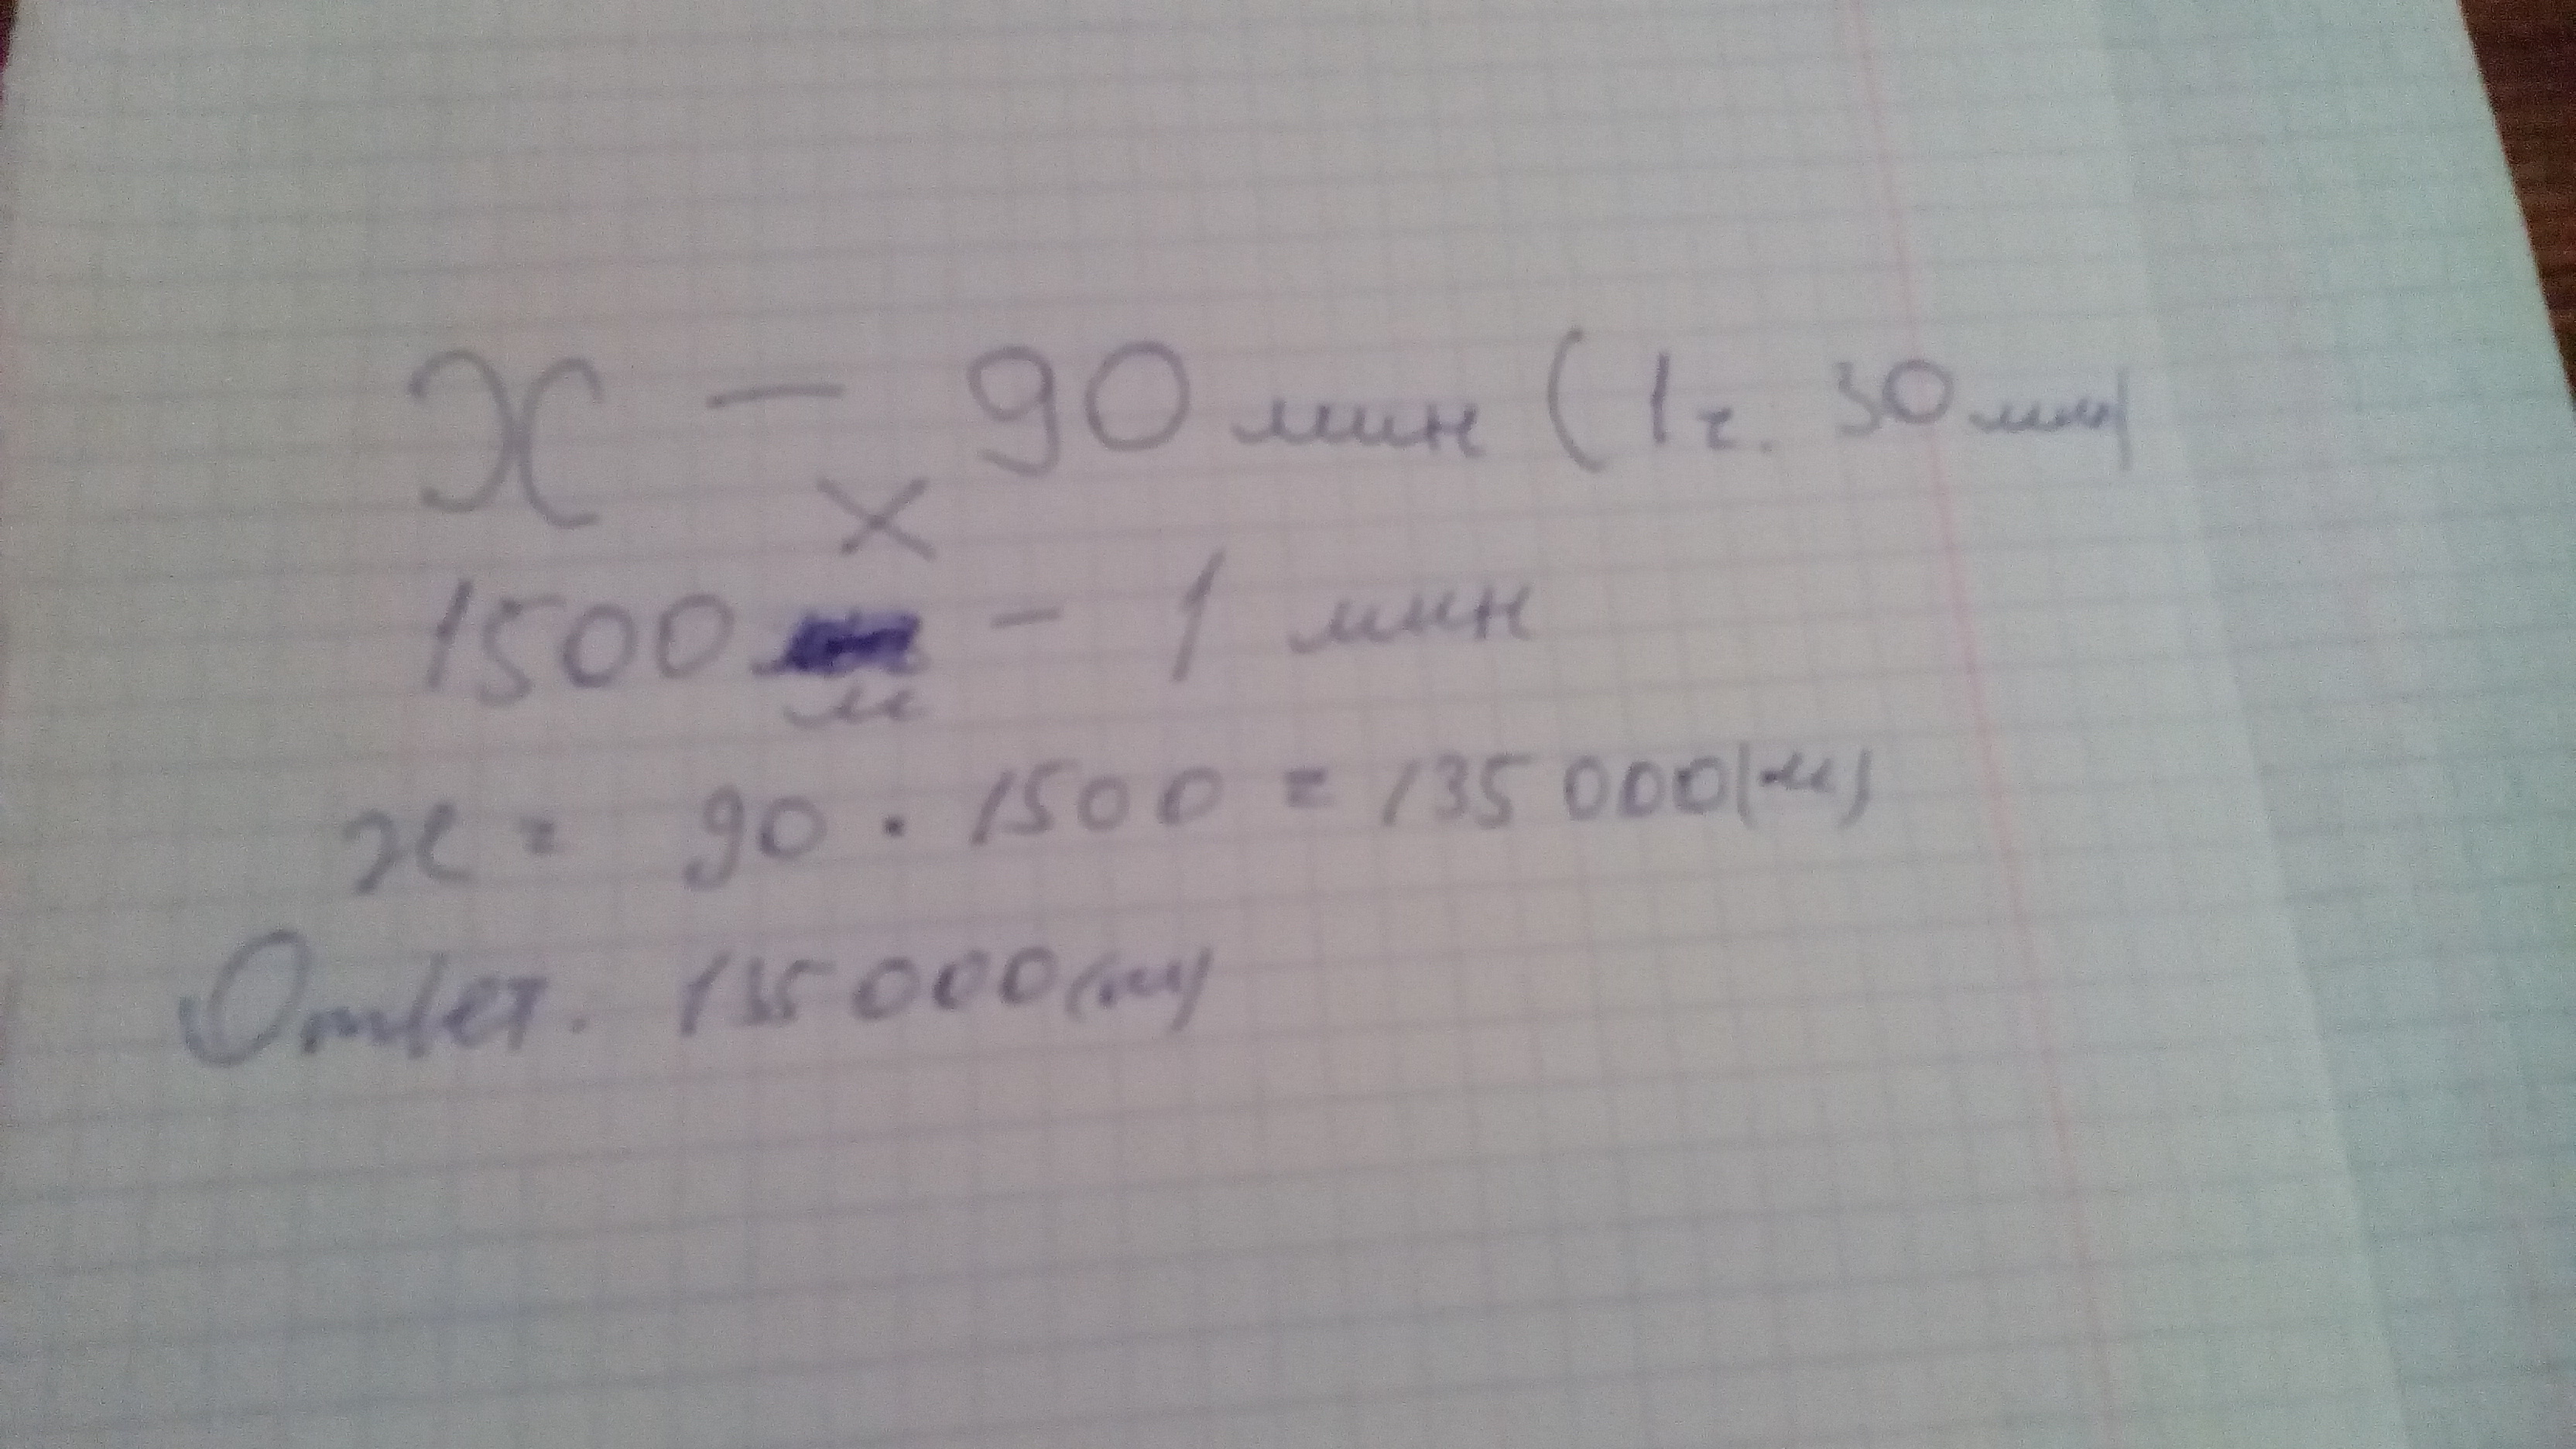 x — 90 мин (1 ч. 30 мин)
×
1500 м - 1 мин
x = 90 · 1500 = 135 000 (м)
Ответ. 135 000 (м)